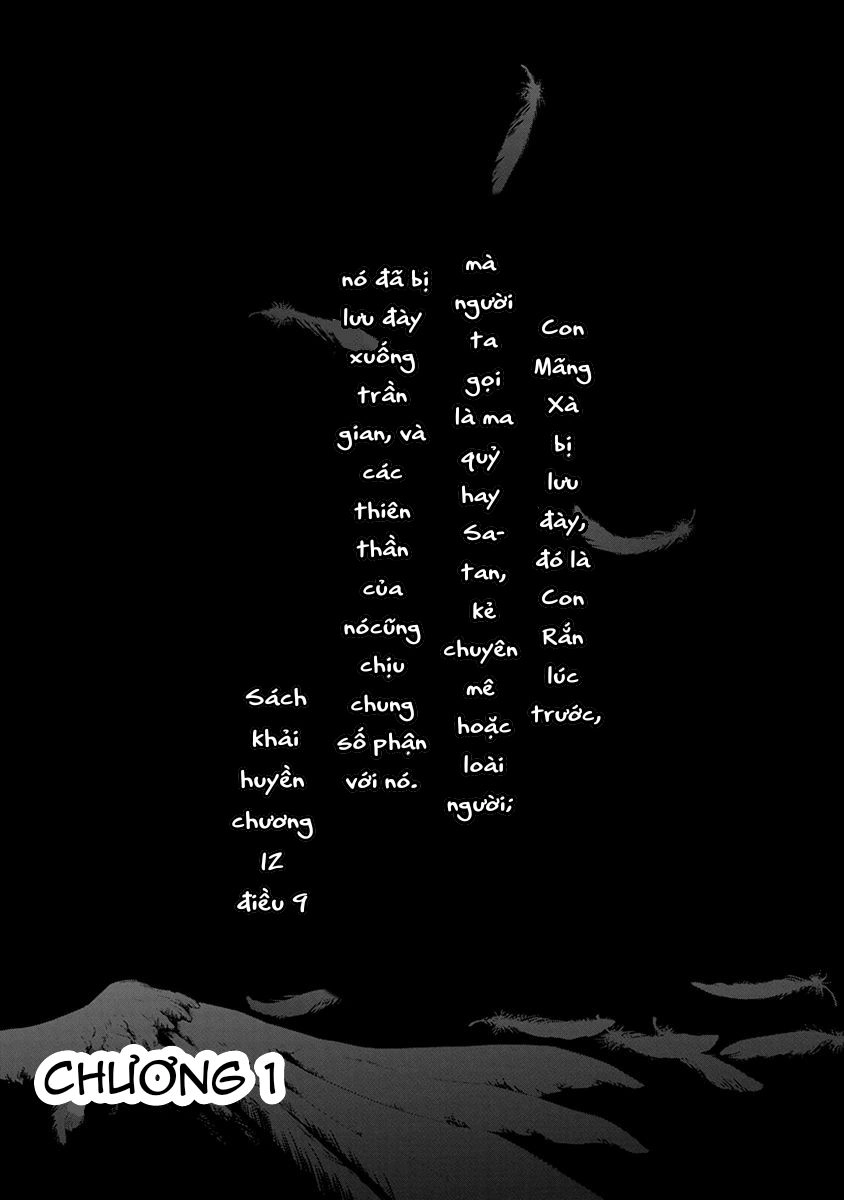 Con
Mãng
Xà
bị
lưu
đày,
đó là
Con
Rắn
lúc
trước,
mà
người
ta
gọi
là ma
quỷ
hay
Sa-
tan,
kẻ
chuyên
mê
hoặc
loài
người;
nó đã bị
lưu đày
xuống
trần
gian, và
các
thiên
thần
của
nócũng
chịu
chung
số phận
với nó.
Sách
khải
huyền
chương
12
điều 9
CHƯƠNG 1